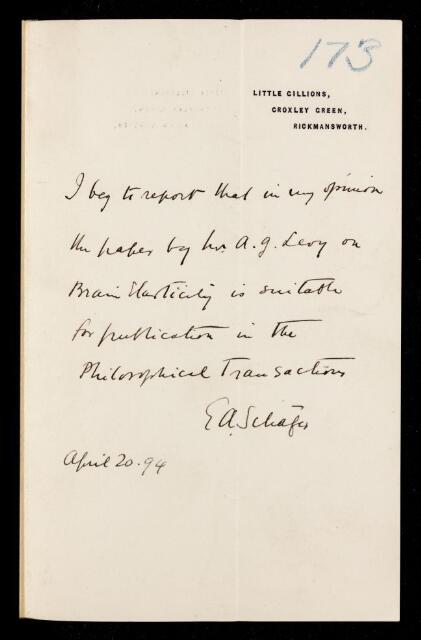 173
LITTLE GILLIONS,
CROXLEY GREEN,
RICKMANSWORTH.
I beg to report that in my opinion
the paper by Mr. A. G. Levy on
Brain Elasticity is suitable
for publication in the
Philosophical Transactions
E A Schäfer
April 20. 94